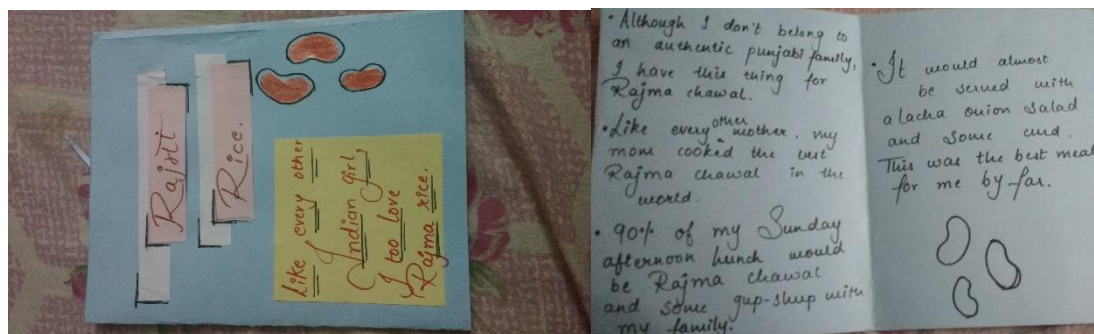 Rajní
Rice.
Like every other
Indian girl,
I too love
Rajma rice.
• Although I don't belong to
an authentic punjabi family,
I have this thing for
Rajma chawal.
• Like every other mother, my
mom cooked the best
Rajma chawal in the
world.
• 90% of my Sunday
afternoon lunch would
be Rajma chawal
and some gup-shup with
my family.
• It would almost
be served with
a lacha onion salad
and some curd.
This was the best meal
for me by far.